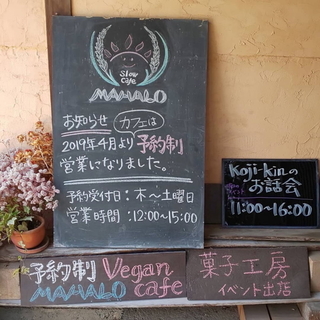 Slow
Cafe
MAHALO
お知らせ カフェは
2019年4月より予約制
営業になりました。
予約受付日:木〜土曜日
営業時間:12:00〜15:00
Koji-kinの
お話会
11:00〜16:00
予約制 Vegan
MAHALO cafe
菓子工房
イベント出店